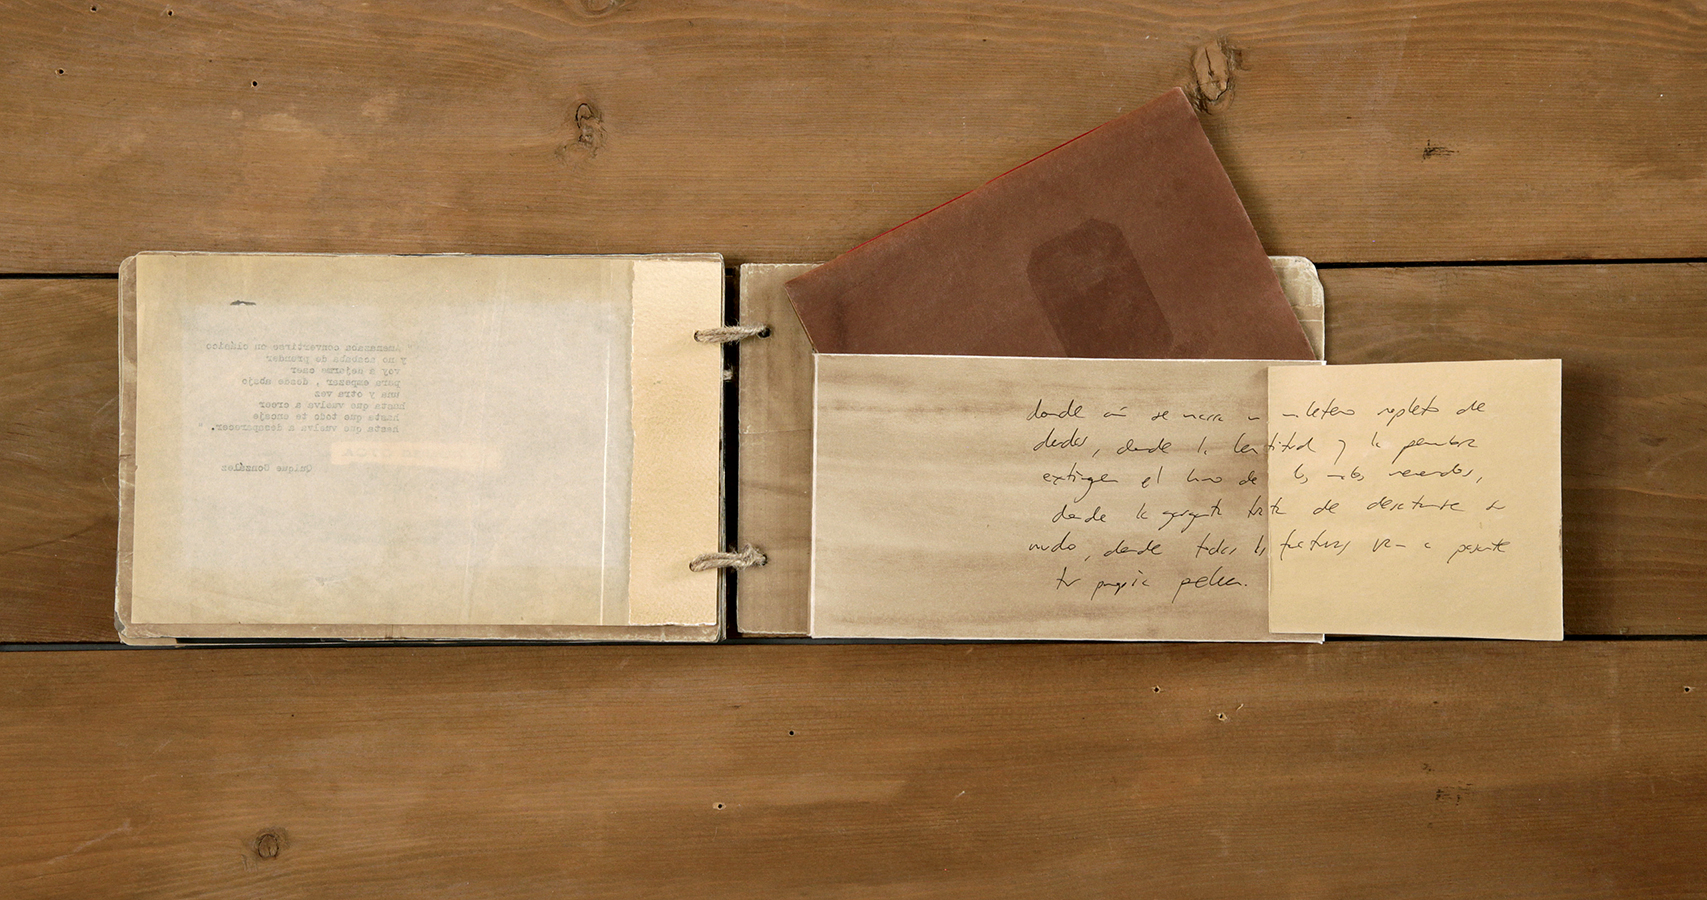 "Amenazan convertirse en clásico
y no acabaña de prender
voy a dejarme caer
para empezar , desde abajo
una y otra vez
hasta que vuelva a creer
hasta que todo te encaje
hasta que vuelva a desaparecer. "
Quique González
donde aún se narra un maletero repleto de
dudas, donde la lentitud y la penumbra
extinguen el humo de los malos recuerdos,
donde la garganta trata de desatarse un
nudo, donde todas las facturas van a pagarte
tu propia pelea.